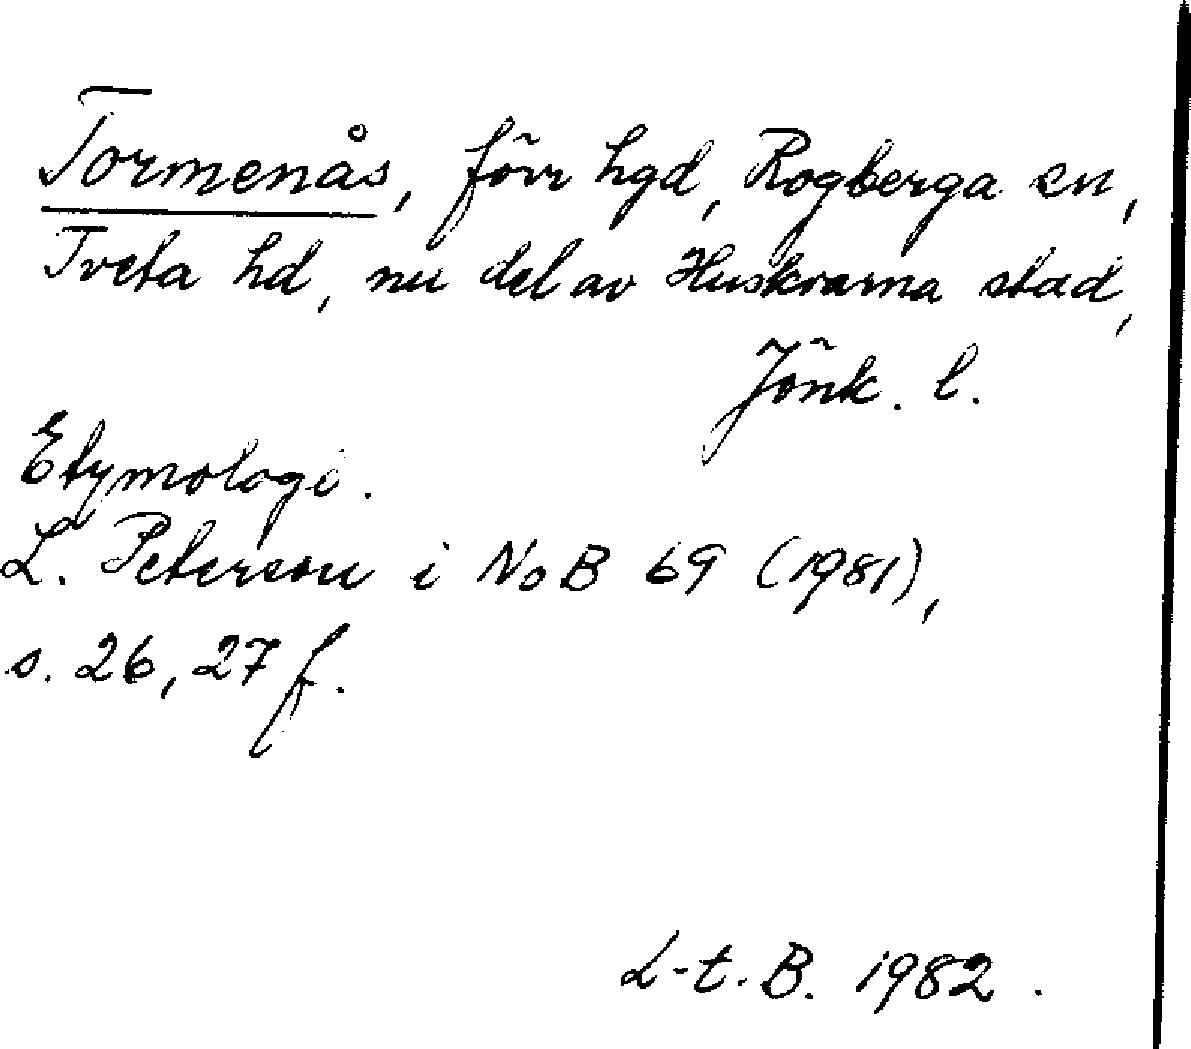 Tormenås, förr hgd, Rogberga sn,
Tveta hd, nu del av Huskvarna stad,
Jönk. l.
Etymologi.
L. Peterson i NoB 69 (1981),
s. 26, 27 f.
L-t. B. 1982.